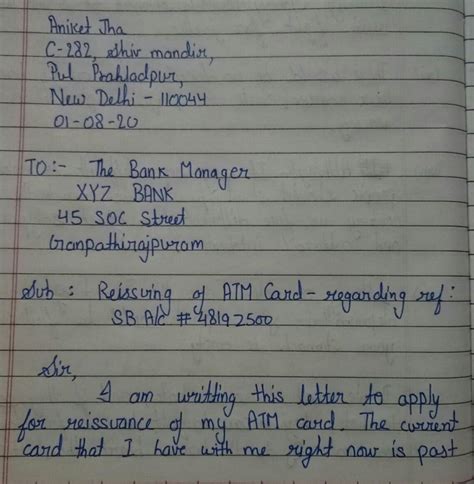 Aniket Jha
C-282, Shiv mandir,
Pul Prahladpur,
New Delhi - 110044
01-08-20
TO:- The Bank Manager
XYZ BANK
45 SOC Street
Ganpathirajpuram
Sub : Reissuing of ATM Card - regarding ref:
SB A/c # 48192500
Sir,
I am writting this letter to apply
for reissuance of my ATM card. The current
card that I have with me right now is past